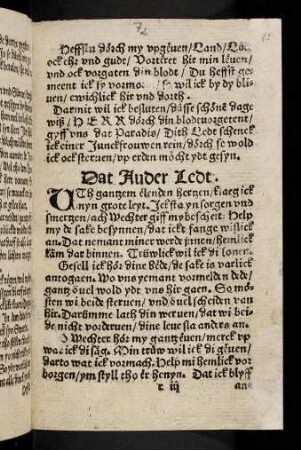 Heffstu dörch my vpgeuen/Land/Lü,
ock ehr vnd gudt/ Vorteret hir min leuen/
vnd ock vorgaten din blodt/ Du heffst ge,
meent ick sy vorlaren/ wil ick by dy bli,
uen/ ewichlick hir vnd dorth.
Darmit wil ick besluten/ dässe schöne dage
wiß/ HERR dörch din blodtvorgetent/
gyff vns dat Paradis/ Dith Ledt schenck
ick einer Junckfrouwen rein/ dörch se wold
ick ock steruen/ vp erden möcht ydt gesyn.
Dat Ander Ledt.
UTh gantzem elenden herzen/ klaeg ick
myn grote leyt. Ick sta yn sorgen vnd
smertzen/ach Wechter giff my bescheit Help
my de sake besynnen/ dat ickt fange wißlick
an. Dat nemant miner werde innen/ hemlick
kam dar binnen. Trüwlick wil ick di lonen.
Gesell ick hör dine Bede/ de sake is varlick
antogaen. Wo vns yemant vormelden dede/
gantz öuel wold ydt vns hir gaen. So mö,
sten wi beide steruen/ vnd öuel scheiden van
hir. Darümme lath din weruen/ dat wi bei,
de nicht vorderuen/ dine leue sla anders an.
O Wechter hör my gantz euen/ merck vp
wat ick di säg. Min trüw wil ick di geuen/
darto wat ick vormach. Help mi hemlick vor
borgen/ ym styll tho er henyn. Dat ick blyff
r iij an,